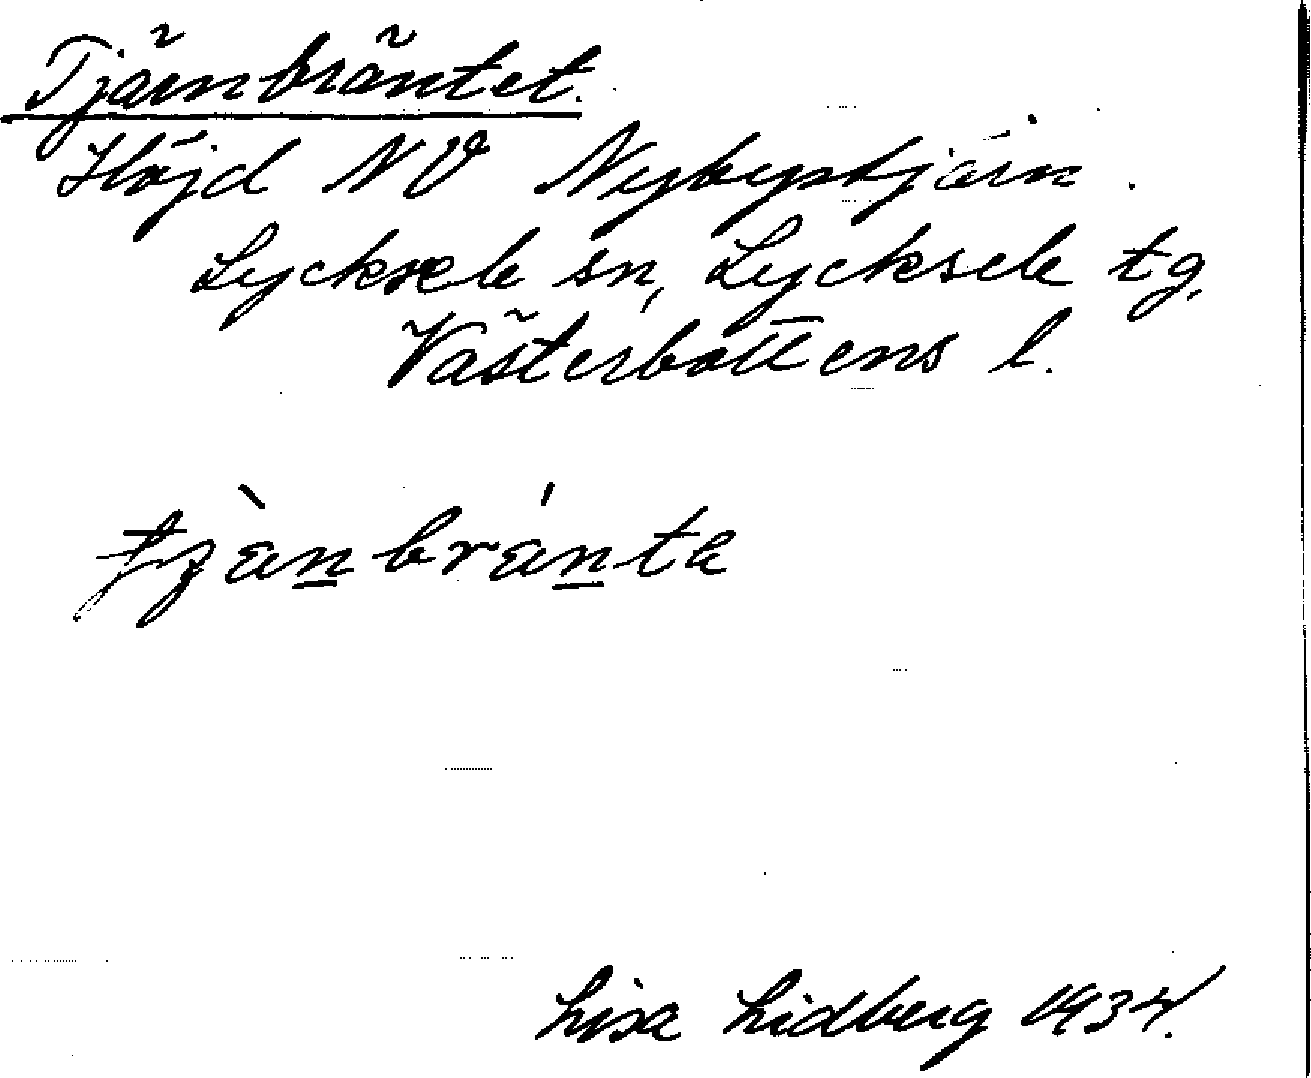 Tjärnbräntet.
Höjd NV Nybystjärn.
Lycksele sn, Lycksele tg,
Västerbottens l.
Lisa Lidberg 1934.